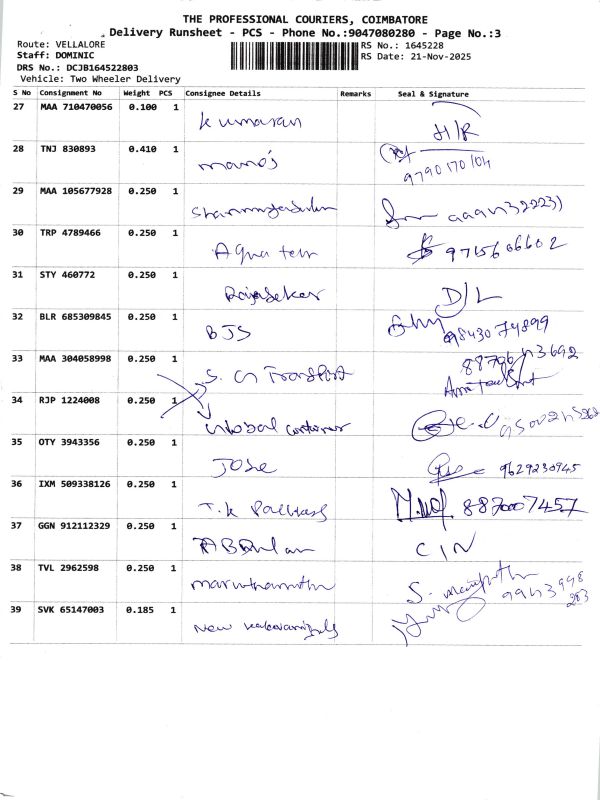 THE PROFESSIONAL COURIERS, COIMBATORE
Delivery Runsheet - PCS - Phone No.:9047080280 - Page No.:3
Route: VELLALORE RS No.: 1645228
Staff: DOMINIC RS Date: 21-Nov-2025
DRS No.: DCJB164522803
Vehicle: Two Wheeler Delivery
S No Consignment No Weight PCS Consignee Details Remarks Seal & Signature
27 MAA 710470056 0.100 1 Kumaran
28 TNJ 830893 0.410 1 9790170104
29 MAA 105677928 0.250 1
30 TRP 4789466 0.250 1 Aqua 9715606602
31 STY 460772 0.250 1 Rajasekar D/L
32 BLR 685309845 0.250 1 BJS 9843074899
33 MAA 304058998 0.250 1 S. G Transport
34 RJP 1224008 0.250 1 Global container
35 OTY 3943356 0.250 1 Jose 9629230945
36 IXM 509338126 0.250 1 T.K 8870007457
37 GGN 912112329 0.250 1 C/N
38 TVL 2962598 0.250 1
39 SVK 65147003 0.185 1 New